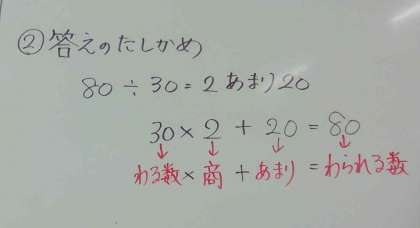 ②答えのたしかめ
80÷30=2あまり20
30×2+20=80
↓ ↓ ↓ ↓
わる数×商+あまり=わられる数